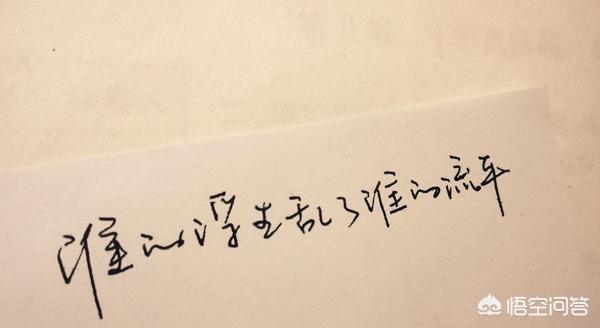 谁的浮生乱了谁的流年
悟空问答